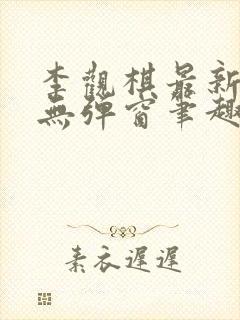 李觀棋最新
無彈窗筆趣
素衣遲遲